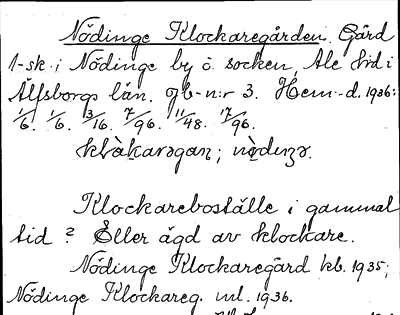 Nödinge Klockaregården. Gård
1-sk. i Nödinge by o. socken, Ale hd i
Älfsborgs län. jb-n:r 3. Hem-d. 1936:
1/6. 1/6. 3/16. 7/96. 11/48. 17/96.
Klockareboställe i gammal
tid? Eller ägd av klockare.
Nödinge Klockaregård kb. 1935;
Nödinge Klockareg. ml. 1936.